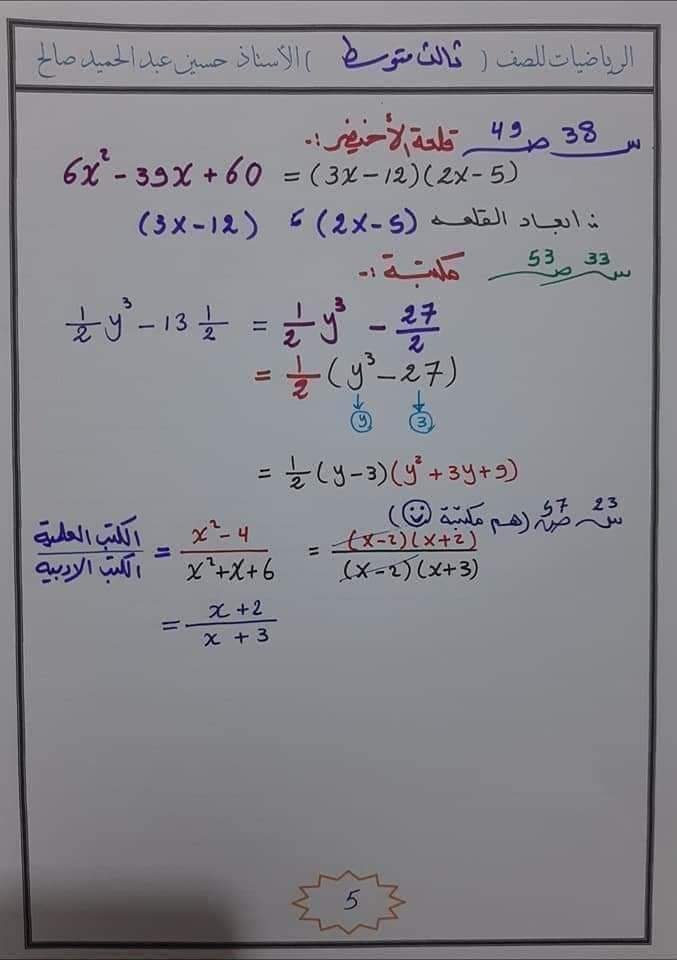 الرياضيات للصف ( ثالث متوسط ) الأستاذ حسين عبد الحميد صالح
س 38 ص 49 قلعة الأخيضر :-
6x² - 39x + 60 = (3x - 12)(2x - 5)
∴ ابعاد القلعه (2x - 5) ، (3x - 12)
س 33 ص 53 مكتبة :-
1/2 y³ - 13 1/2 = 1/2 y³ - 27/2
= 1/2 (y³ - 27)
y 3
= 1/2 (y - 3)(y² + 3y + 9)
س 23 ص 57 (هم مكتبة ☺)
الكتب العلمية / الكتب الادبية = x² - 4 / x² + x + 6 = (x - 2)(x + 2) / (x - 2)(x + 3)
= x + 2 / x + 3
5